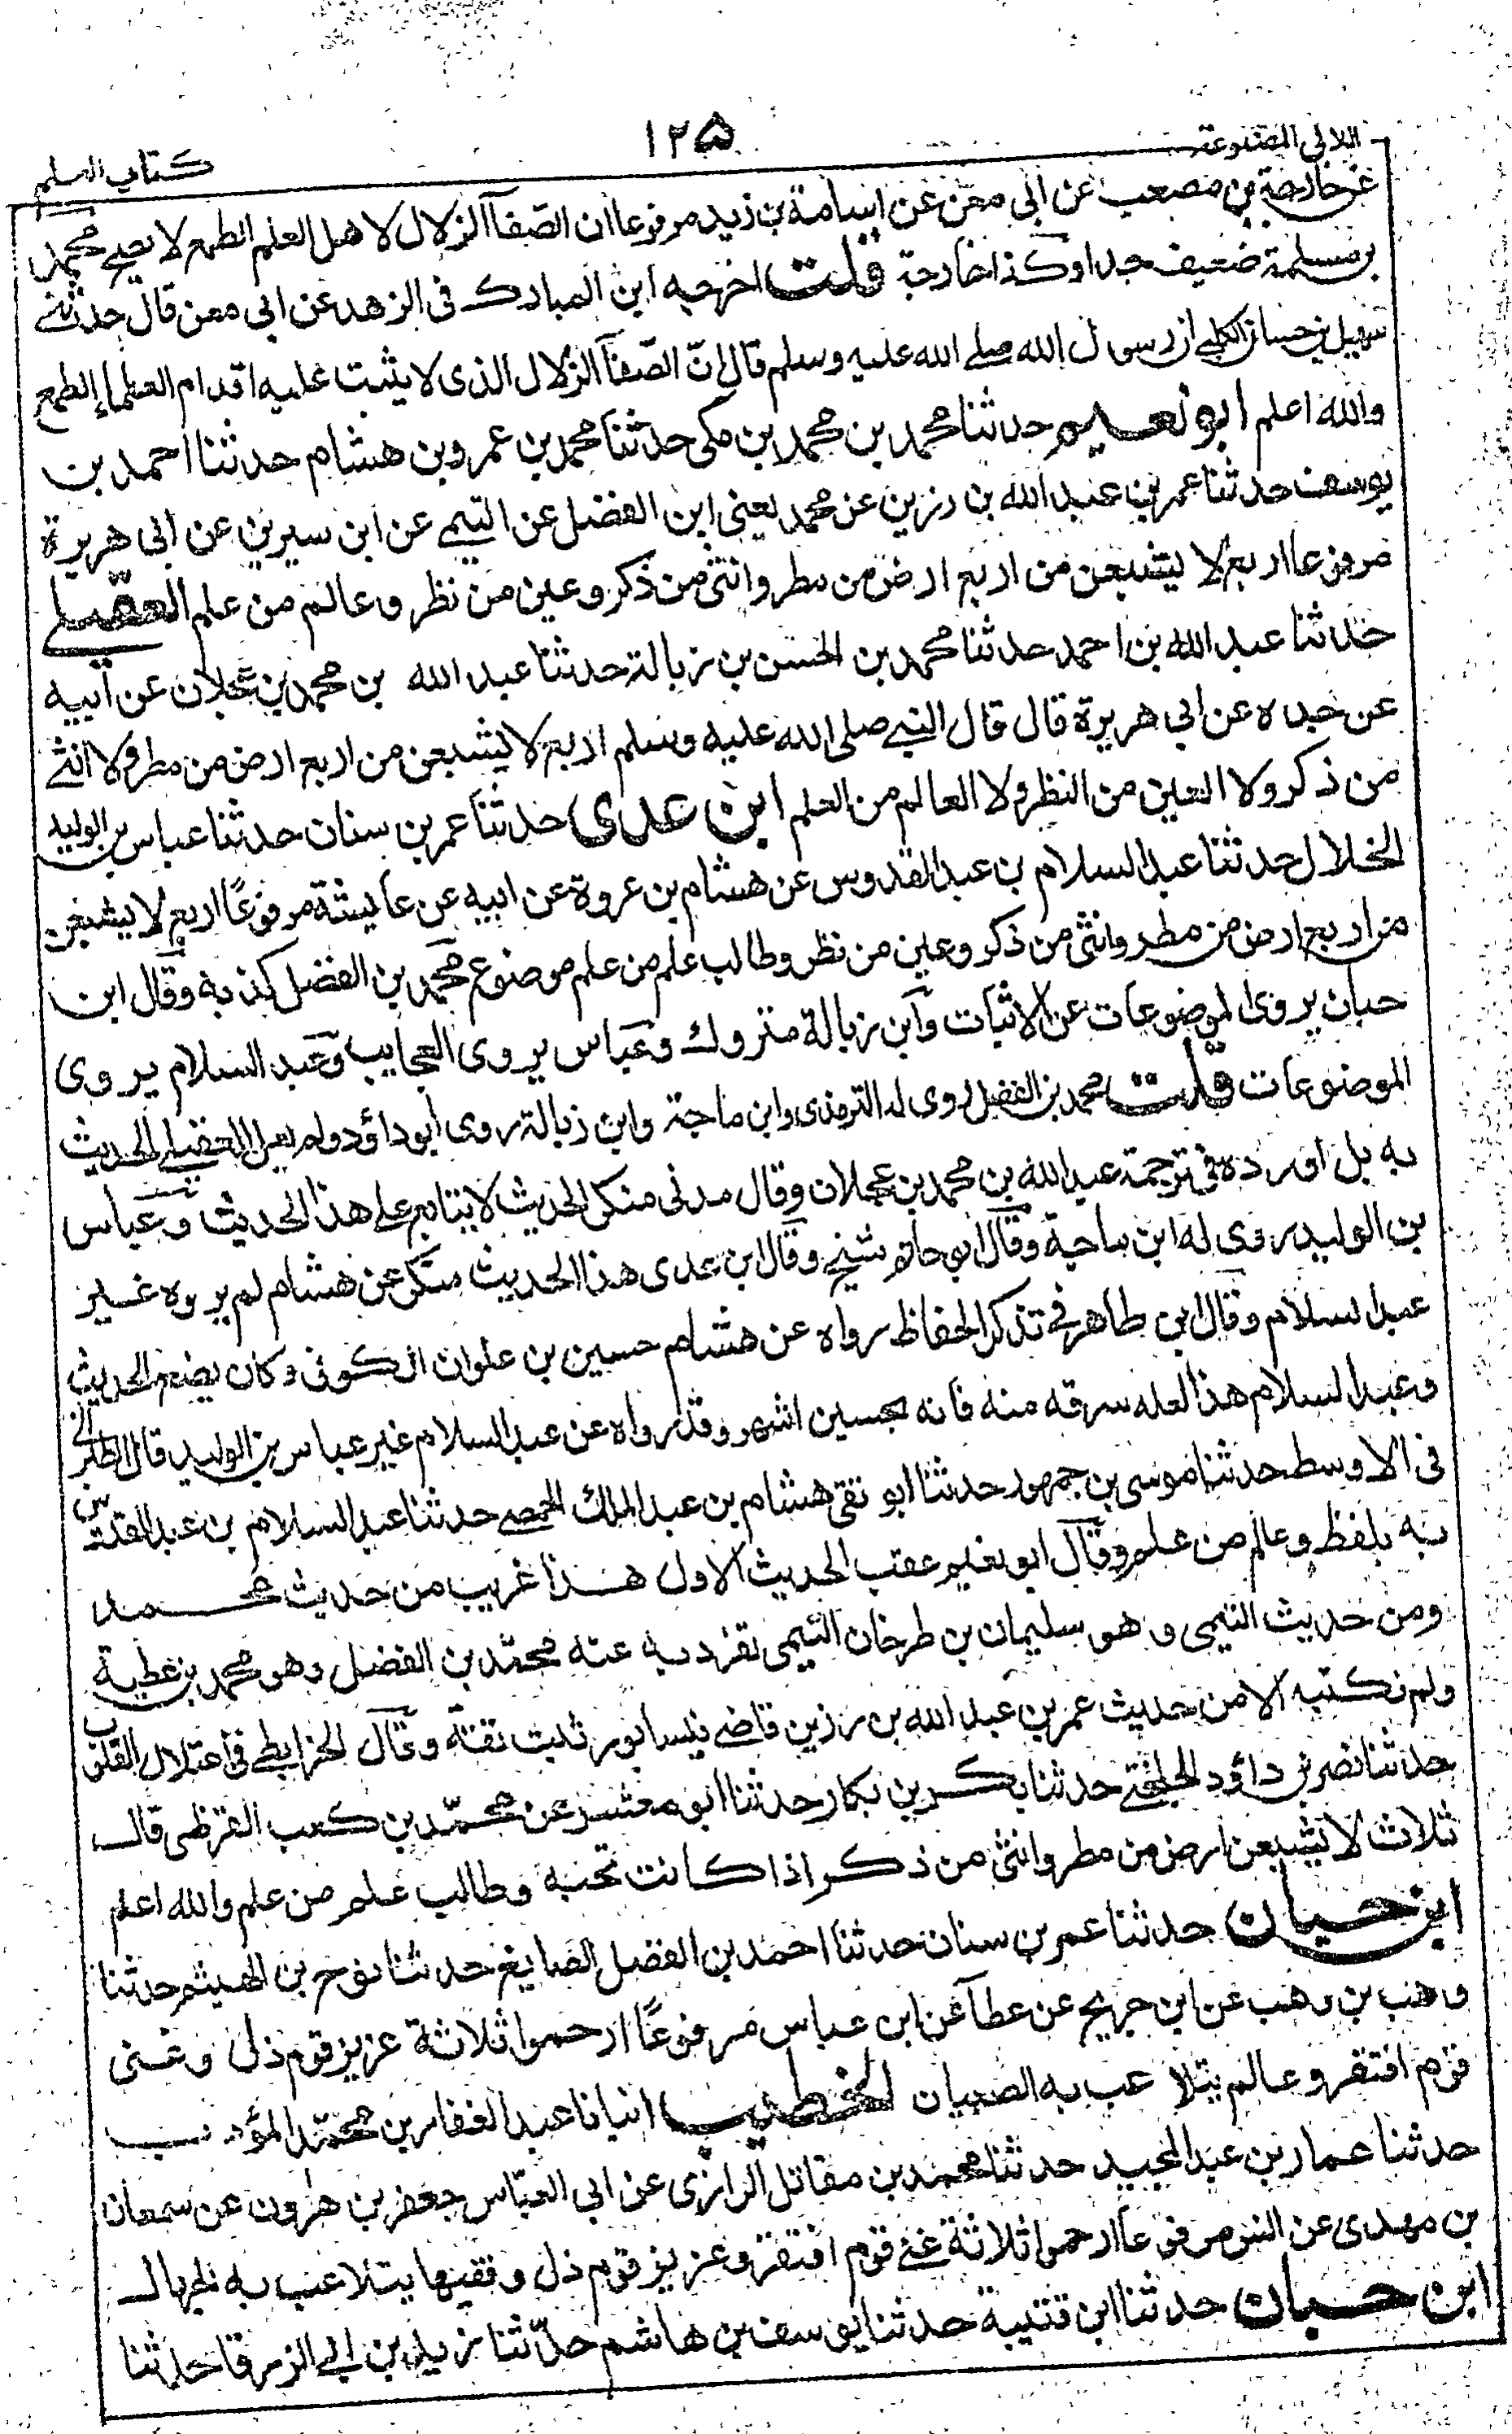 اللالى المصنوعة
۱۲۵
كتاب العلم
عن خارجة بن مصعب عن ابى معن عن اسامة بن زيد مرفوعا ان الصفآ الزلال لاهل العلم الطمع لا يصح محمد
بن مسلمة ضعيف جدا وكذا خارجة قلت اخرجه ابن المبارك فى الزهد عن ابى معن قال حدثنى
سهيل بن حسان الكلبى ان رسول الله صلى الله عليه وسلم قال انّ الصّفآ الزلال الذى لا يثبت عليه اقدام العلماء الطمع
والله اعلم ابو نعيم حدثنا محمد بن محمد بن مكى حدثنا محمد بن عمرو بن هشام حدثنا احمد بن
يوسف حدثنا عمر بن عبد الله بن رزين عن محمد يعنى ابن الفضل عن التيمى عن ابن سيرين عن ابى هريرة
مرفوعا اربع لا يشبعن من اربع ارض من مطر وانثى من ذكر وعين من نظر وعالم من علم العقيلى
حدثنا عبد الله بن احمد حدثنا محمد بن الحسن بن زبالة حدثنا عبد الله بن محمد بن عجلان عن ابيه
عن جده عن ابى هريرة قال قال النبى صلى الله عليه وسلم اربع لا يشبعن من اربع ارض من مطر ولا انثى
من ذكر ولا العين من النظر ولا العالم من العلم ابن عدى حدثنا عمر بن سنان حدثنا عباس بن الوليد
الخلال حدثنا عبد السلام بن عبد القدوس عن هشام بن عروة عن ابيه عن عايشة مرفوعًا اربع لا يشبعن
من اربع ارض من مطر وانثى من ذكر وعين من نظر وطالب علم من علم موضوع محمد بن الفضل كذبه وقال ابن
حبان يروى الموضوعات عن الاثبات وابن زبالة متروك وعباس يروى العجايب وعبد السلام يروى
الموضوعات قلت محمد بن الفضل روى له الترمذى وابن ماجة وابن زبالة روى ابو داؤد ولم يعل العقيلى الحديث
به بل اورده فى ترجمة عبد الله بن محمد بن عجلان وقال مدنى منكر الحديث لا يتابع على هذا الحديث وعباس
بن الوليد روى له ابن ماجة وقال ابو حاتم شيخ وقال ابن عدى هذا الحديث منكر عن هشام لم يروه غير
عبد السلام وقال ابن طاهر فى تذكرة الحفاظ رواه عن هشام حسين بن علوان الكوفى وكان يضع الحديث
وعبد السلام هذا لعله سرقه منه فانه بحسين اشهر وقد رواه عن عبد السلام غير عباس بن الوليد قال الطبرانى
فى الاوسط حدثنا موسى بن جمهور حدثنا ابو تقى هشام بن عبد الملك الحمصى حدثنا عبد السلام بن عبد القدوس
به بلفظ وعالم من علم وقال ابو نعيم عقب الحديث الاول هذا غريب من حديث محمد
ومن حديث التيمى وهو سليمان بن طرخان التيمى تفرد به عنه محمد بن الفضل وهو محمد بن عطية
ولم نكتبه الا من حديث عمر بن عبد الله بن رزين قاضى نيسابور ثبت ثقة وقال الخرايطى فى اعتلال القلوب
حدثنا نصر بن داؤد الخلنجى حدثنا بكر بن بكار حدثنا ابو معشر عن محمد بن كعب القرظى قال
ثلاث لا يشبعن ارض من مطر وانثى من ذكر اذا كانت تحبه وطالب علم من علم والله اعلم
ابن حبان حدثنا عمر بن سنان حدثنا احمد بن الفضل الصايغ حدثنا نوح بن الهيثم حدثنا
وهب بن وهب عن ابن جريج عن عطآ عن ابن عباس مرفوعًا ارحموا ثلاثة عزيز قوم ذل وغنى
قوم افتقر وعالم يتلاعب به الصبيان الخطيب انبانا عبد الغفار بن محمد المؤدب
حدثنا عمار بن عبد المجيد حدثنا محمد بن مقاتل الرازى عن ابى العباس جعفر بن هرون عن سمعان
بن مهدى عن انس مرفوعا ارحموا ثلاثة غنى قوم افتقر وعزيز قوم ذل وفقيها يتلاعب به الجهال
ابن حبان حدثنا ابن قتيبة حدثنا يوسف بن هاشم حدّثنا زيد بن ابى الزرقا حدثنا